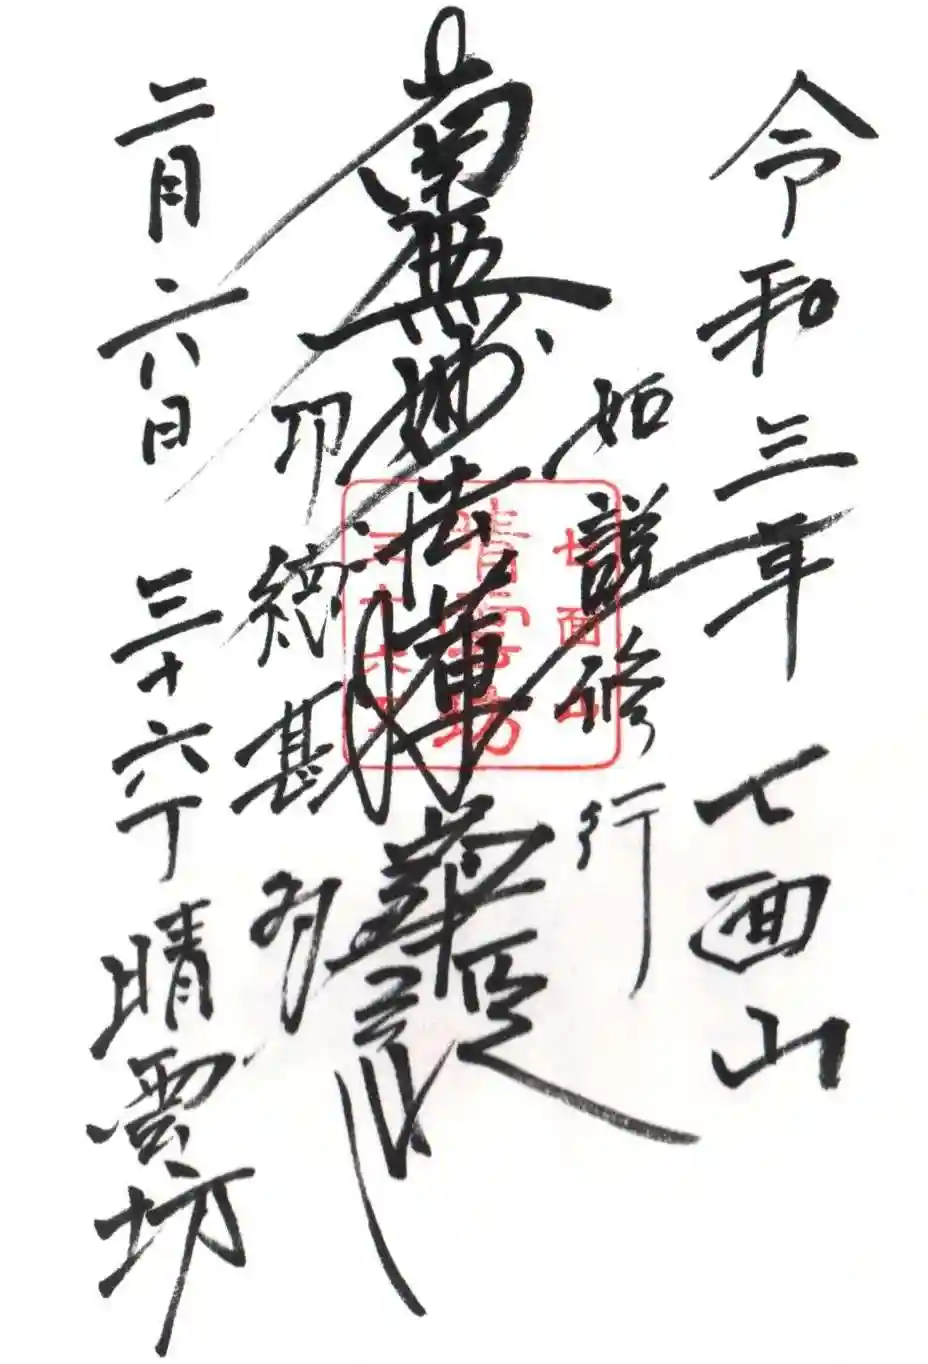 令和三年 七面山
如説修行
南無妙法蓮華経
功徳甚多
二月六日 三十六丁 晴雲坊
七面山
晴雲坊
三十六丁